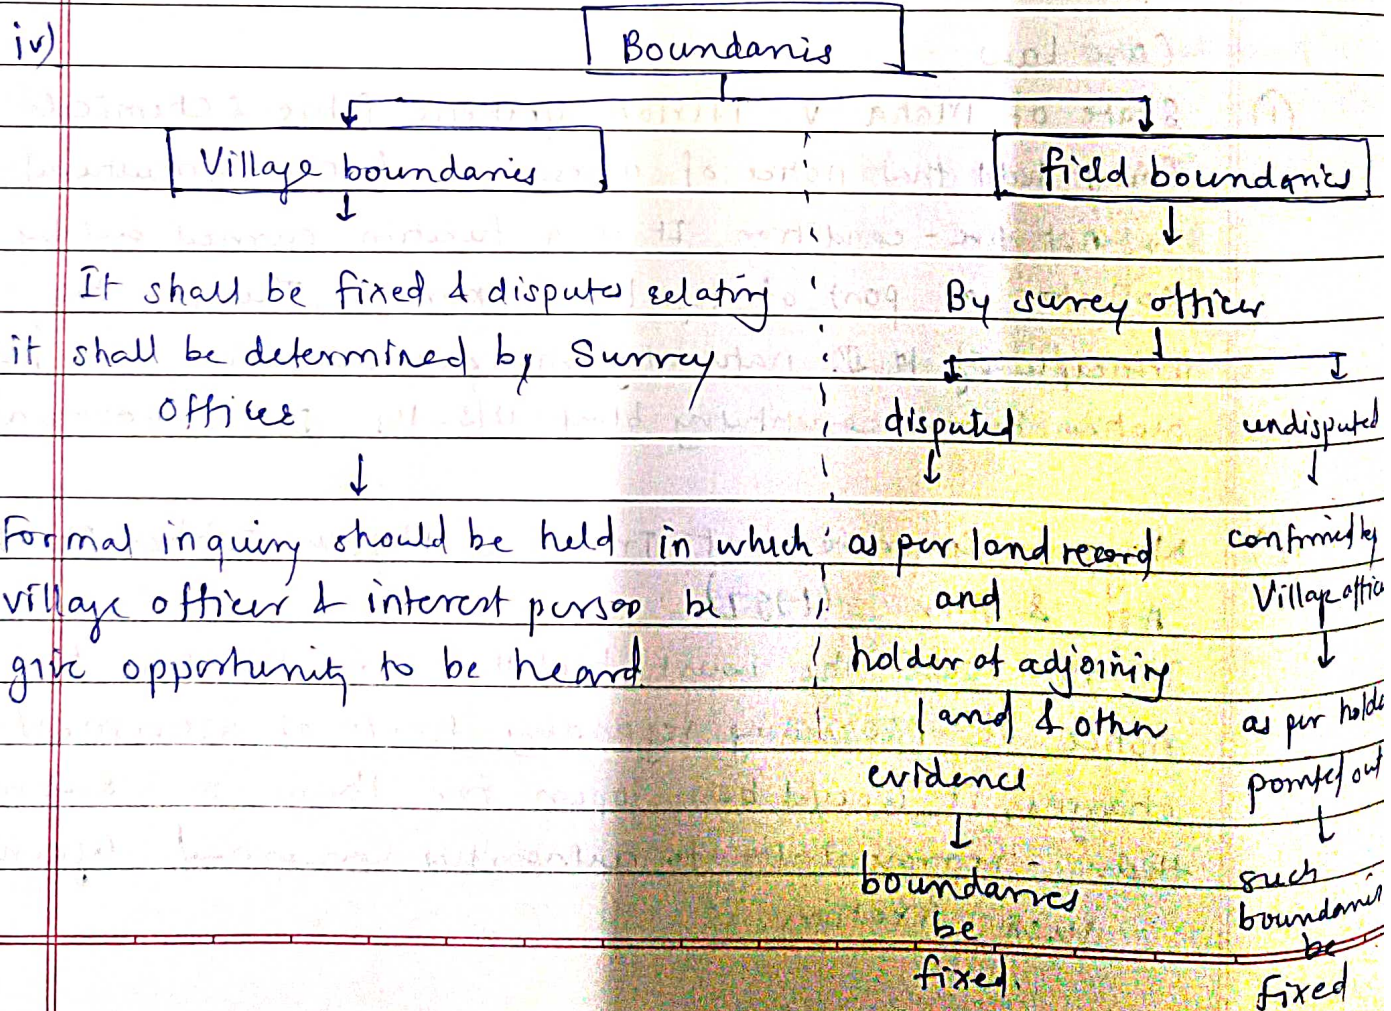 iv)
Boundaries
Village boundaries
field boundaries
It shall be fixed & disputes relating
it shall be determined by Survey
Offices
Formal inquiry should be held in which
village officer & interest person be
give opportunity to be heard
By survey officer
disputed
as per land record
and
holder of adjoining
land & other
evidence
boundaries
be
fixed.
undisputed
confirmed by
Village offic
as per holde
pointed out
such
boundaries
be
fixed